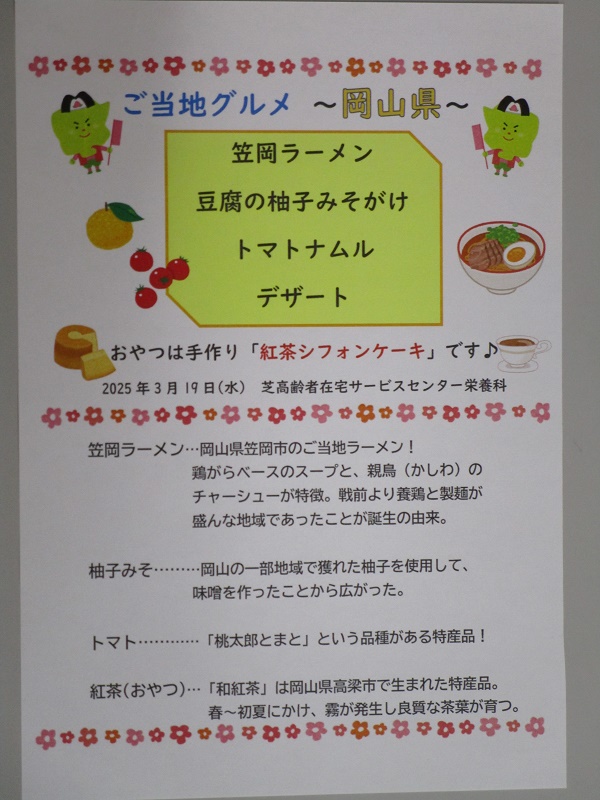 ご当地グルメ ～岡山県～
笠岡ラーメン
豆腐の柚子みそがけ
トマトナムル
デザート
おやつは手作り「紅茶シフォンケーキ」です♪
2025年3月19日(水) 芝高齢者在宅サービスセンター栄養科
笠岡ラーメン…岡山県笠岡市のご当地ラーメン！
鶏がらベースのスープと、親鳥（かしわ）の
チャーシューが特徴。戦前より養鶏と製麺が
盛んな地域であったことが誕生の由来。
柚子みそ………岡山の一部地域で獲れた柚子を使用して、
味噌を作ったことから広がった。
トマト…………「桃太郎とまと」という品種がある特産品！
紅茶(おやつ)…「和紅茶」は岡山県高梁市で生まれた特産品。
春～初夏にかけ、霧が発生し良質な茶葉が育つ。